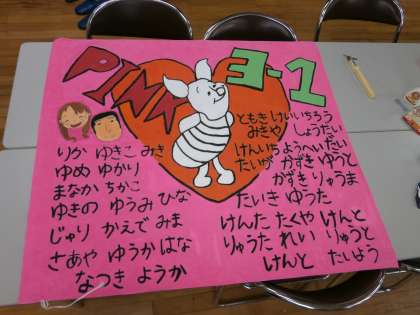 PINK
3-1
ともき けいいちろう
みきや しょうだい
けんいちようへいだい
たいが かずき ゆうと
かずき りゅうま
たいき ゆうた
けんた たくや けんと
りゅうた れい りゅうと
けんと たいよう
りか ゆきこ みき
ゆめ ゆかり
まなか ちかこ
ゆきの ゆうみ ひな
じゅり かえで みま
さあや ゆうか はな
なつき ようか